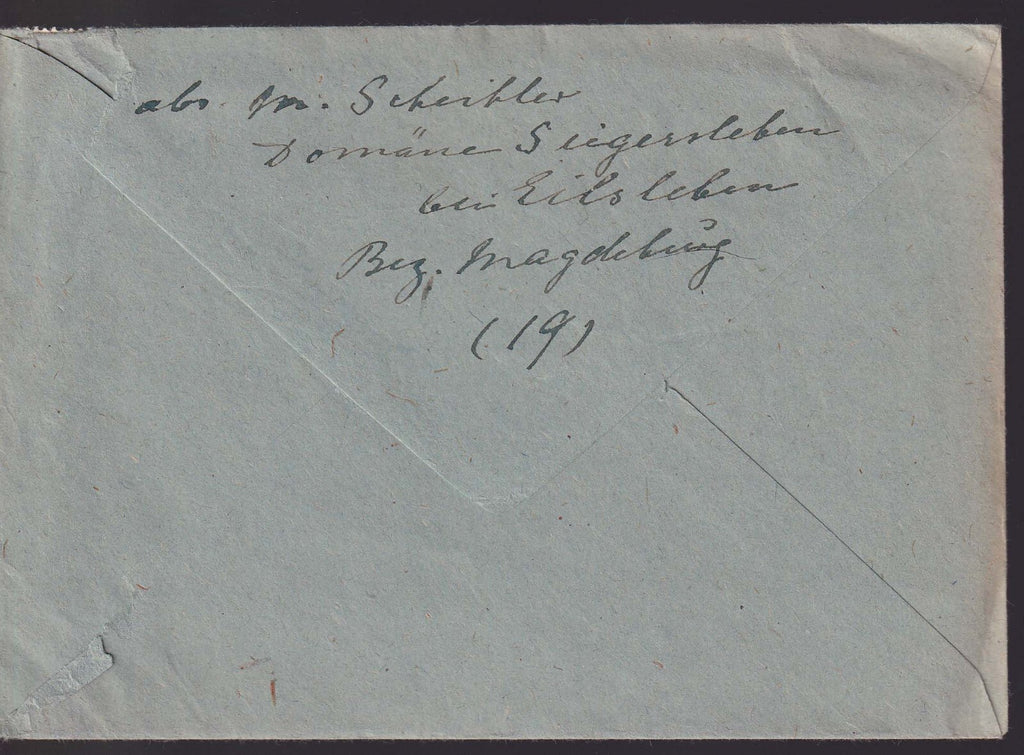 abs. M. Scheibler
Domäne Siegersleben
bei Eilsleben
Bez. Magdeburg
(19)